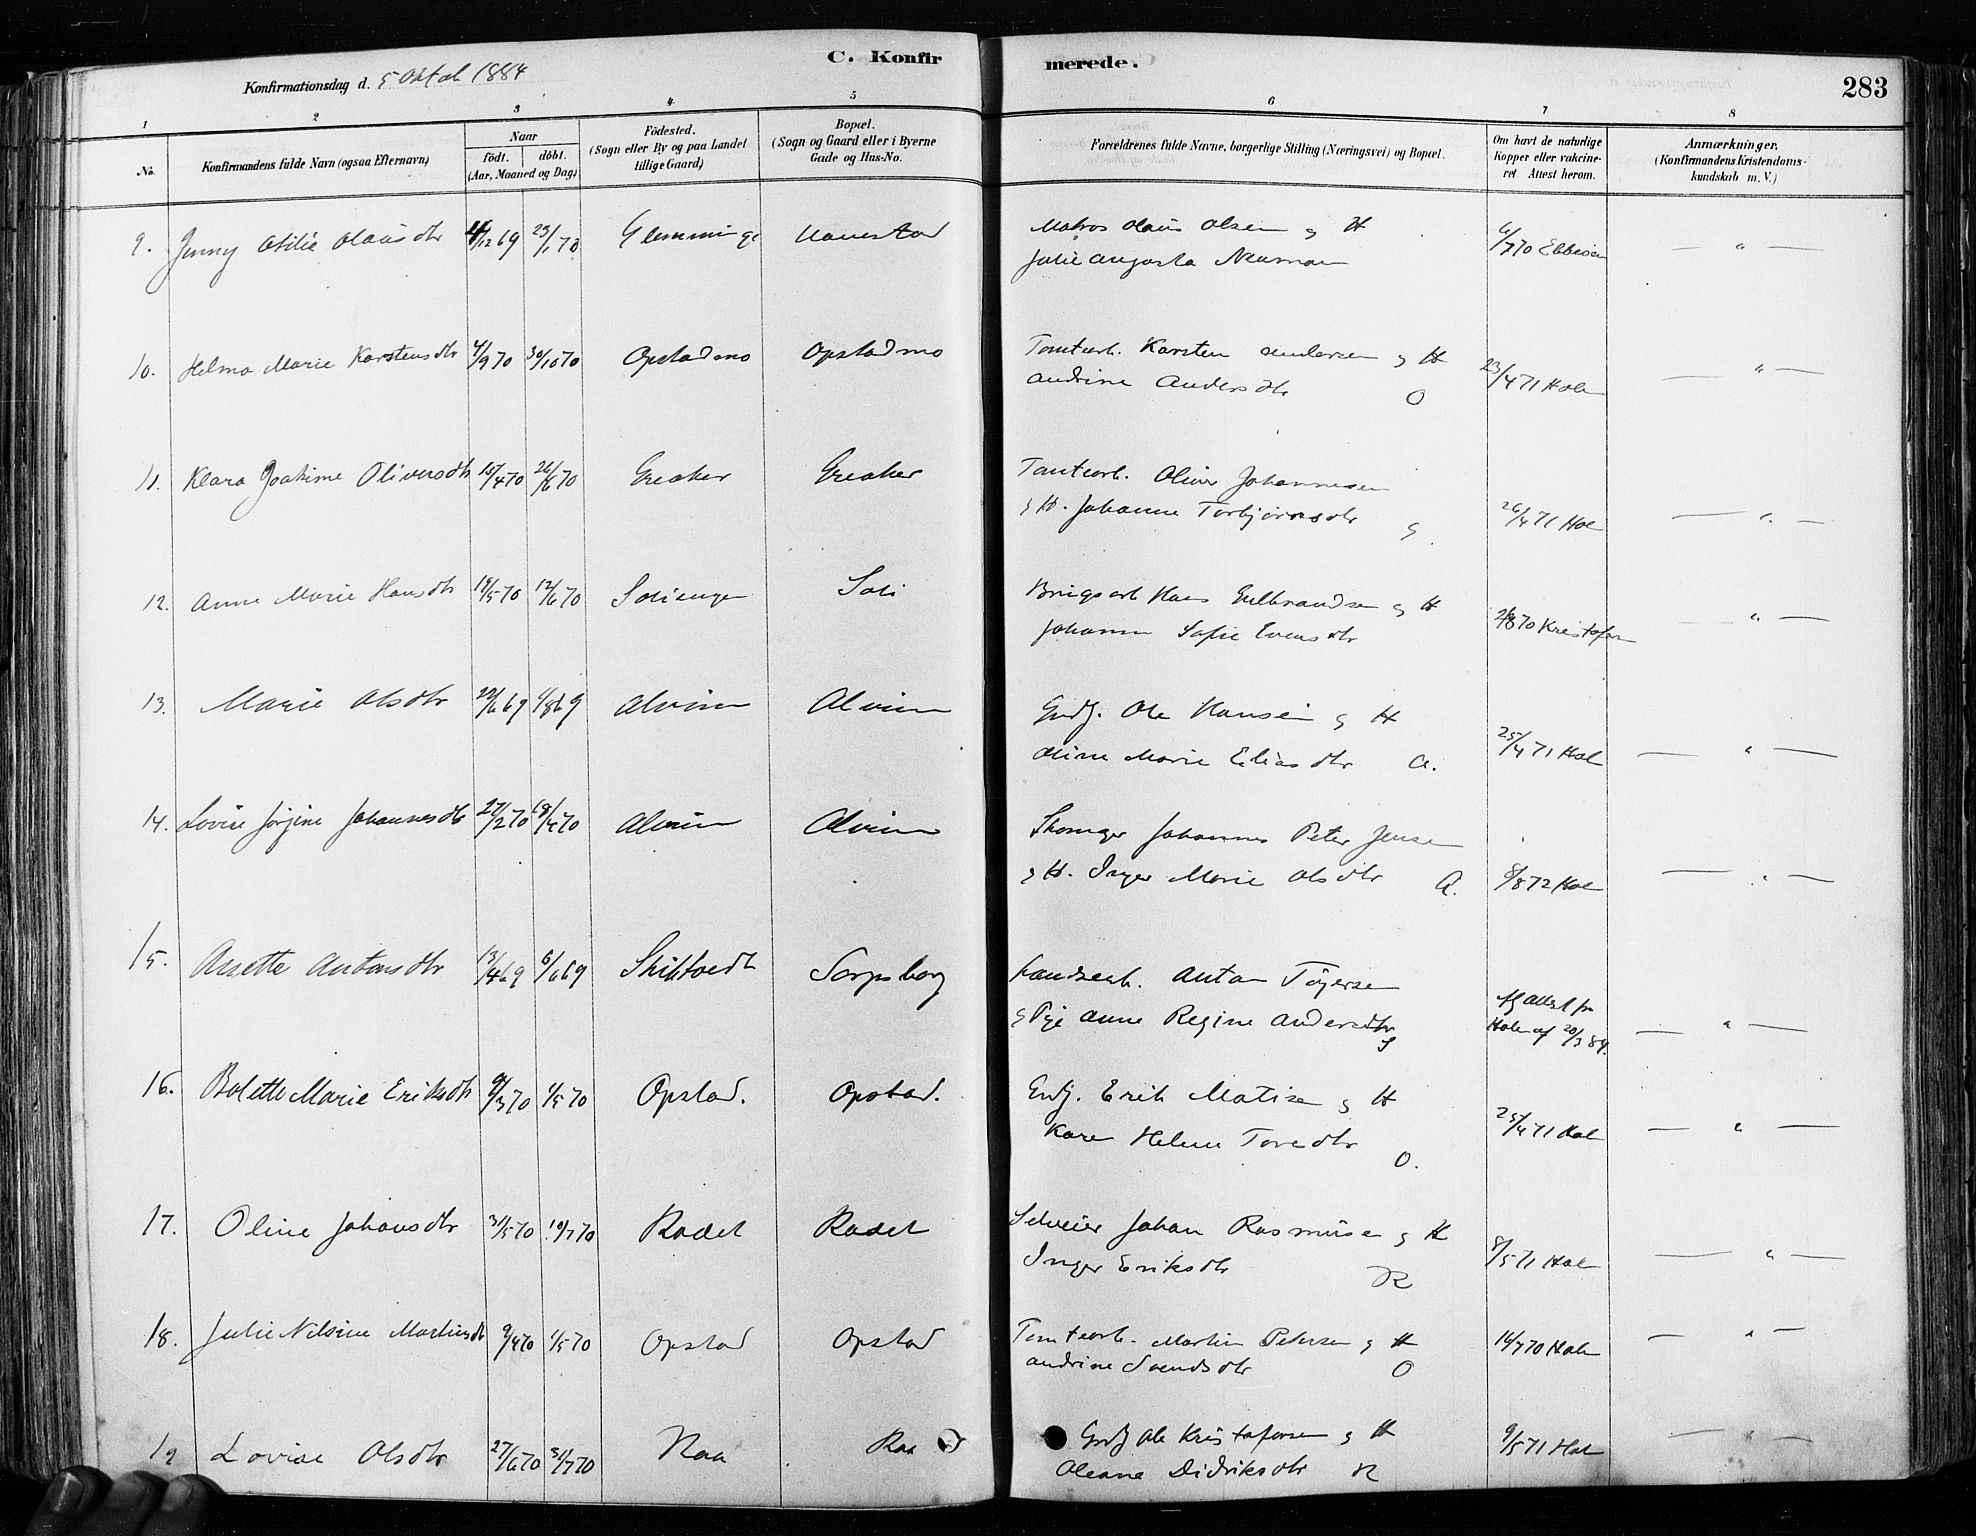 C. Konfirmerede.
283
Konfirmationsdag d. 5 Oktob 1884
1 2 3 4 5 6 7 8
No.
Konfirmandens fulde Navn (ogsaa Efternavn)
Naar
født. døbt.
(Aar, Maaned og Dag)
Fødested.
(Sogn eller By og paa Landet
tillige Gaard)
Bopæl.
(Sogn og Gaard eller i Byerne
Gade og Hus-No.
Forældrenes fulde Navne, borgerlige Stilling (Næringsvei) og Bopæl.
Om havt de naturlige
Kopper eller vakcine-
ret Attest herom.
Anmærkninger.
(Konfirmandens Kristendoms-
kundskab m. V.)
9. Jenny Otilie Olausdtr /12 69 23/1 70 Glemminge Matros Olaus Olsen og H 6/7 70 Ebbesen — " —
Julie Augusta Neuman
10. Helma Marie Karstensdtr 4/9 70 30/10 70 Opstadmo Opstadmo Tomtearb. Karsten Andersen og H 23/4 71 Holm — " —
Andrine Andersdtr O
11. Klara Joakime Oliversdtr 15/4 70 26/6 70 Greaker Greaker Tomtearb. Oliver Johannesen
og H. Johanne Torbjørnsdtr G. 26/4 71 Holm — " —
12. Anne Marie Hansdtr 19/5 70 12/6 70 Soliengen Soli Brugsarb Hans Gulbrandsen og H /8 70 Kristofersen — " —
Johanne Sofie Evensdtr
13. Marie Olsdtr 22/6 69 1/8 69 Alvim Alvim Grdj. Ole Hansen og H
Oline Marie Eliasdtr A. 25/4 71 Holm — " —
14. Lovise Jørgine Johannesdtr 27/2 70 18/4 70 Alvim Alvim Johannes Peter Jensen
og H. Inger Marie Olsdtr A. 8/8 72 Holm — " —
15. Anette Antonsdtr 13/4 69 6/6 69 Skiktvedt Sarpsborg Anton Töjersen
og Pige Anne Regine Andersdtr S Afg attest fra
Holm af 20/3 84. — " —
16. Bolette Marie Eriksdtr 9/3 70 1/5 70 Opstad. Opstad. Grdj. Erik Matisen og H
Karen Helene Toredtr O. 25/4 71 Holm — " —
17. Oline Johansdtr 31/5 70 10/7 70 Rødet Rødet Selveier Johan Rasmusen og H
Inger Eriksdtr R 8/5 71 Holm — " —
18. Julie Nilsine Martinsdtr 9/4 70 1/5 70 Opstad Opstad Tomtearb. Martin Petersen og H 16/7 70 Holm — " —
Andrine Svendsdtr O
19 Lovise Olsdtr 27/6 70 31/7 70 Raa Raa Grdj Ole Kristofersen og H 9/5 71 Holm — " —
Oleane Didriksdtr R